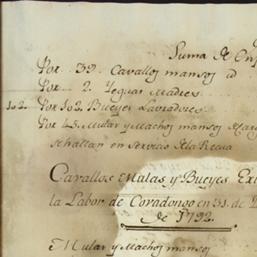 Suma de En
Por 39. Cavallos mansos id
Por 2. Yeguas Madres
102. Por 102. Bueyes Lavradores
Por 45. Mulas y Machos mansos
se hallan en servicio de la Recua
Cavallos Mulas y Bueyes Exi
la Labor de Covadonga en 31. de
de 1792.
Mulas y Machos mansos